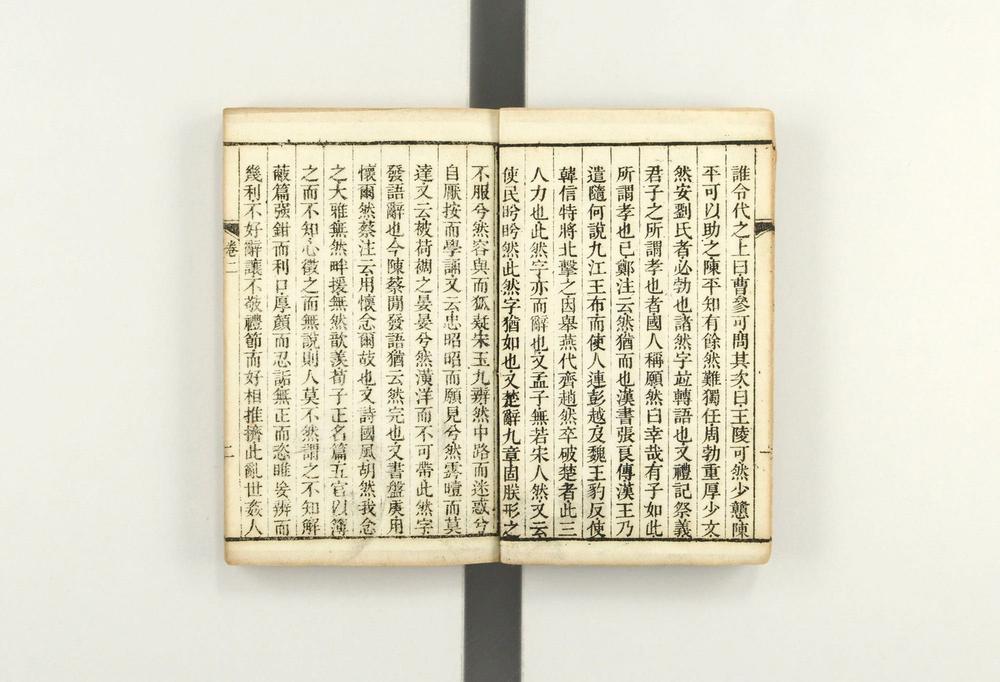 誰令代之上曰曹參可問其次曰王陵可然少戇陳
平可以助之陳平知有餘然難獨任周勃重厚少文
然安劉氏者必勃也諸然字竝轉語也又禮記祭義
君子之所謂孝也者國人稱願然曰幸哉有子如此
所謂孝也已鄭注云然猶而也漢書張良傳漢王乃
遣隨何說九江王布而使人連彭越及魏王豹反使
韓信特將北擊之因舉燕代齊趙然卒破楚者此三
人力也此然字亦而辭也又孟子無若宋人然又云
使民盻盻然此然字猶如也又楚辭九章固朕形之
不服兮然容與而狐疑宋玉九辨然中路而迷惑兮
自厭按而學誦又云忠昭昭而願見兮然霒曀而莫
達又云被荷裯之晏晏兮然潢洋而不可帶此然字
發語辭也今陳蔡閒發語猶云然完也又書盤庚用
懷爾然蔡注云用懷念爾故也又詩國風胡然我念
之大雅無然畔援無然歆羡荀子正名篇五官以簿
之而不知心徵之而無說則人莫不然謂之不知解
蔽篇强鉗而利口厚顏而忍詬無正而恣睢妄辨而
幾利不好辭讓不敬禮節而好相推擠此亂世姦人
卷二
一
二